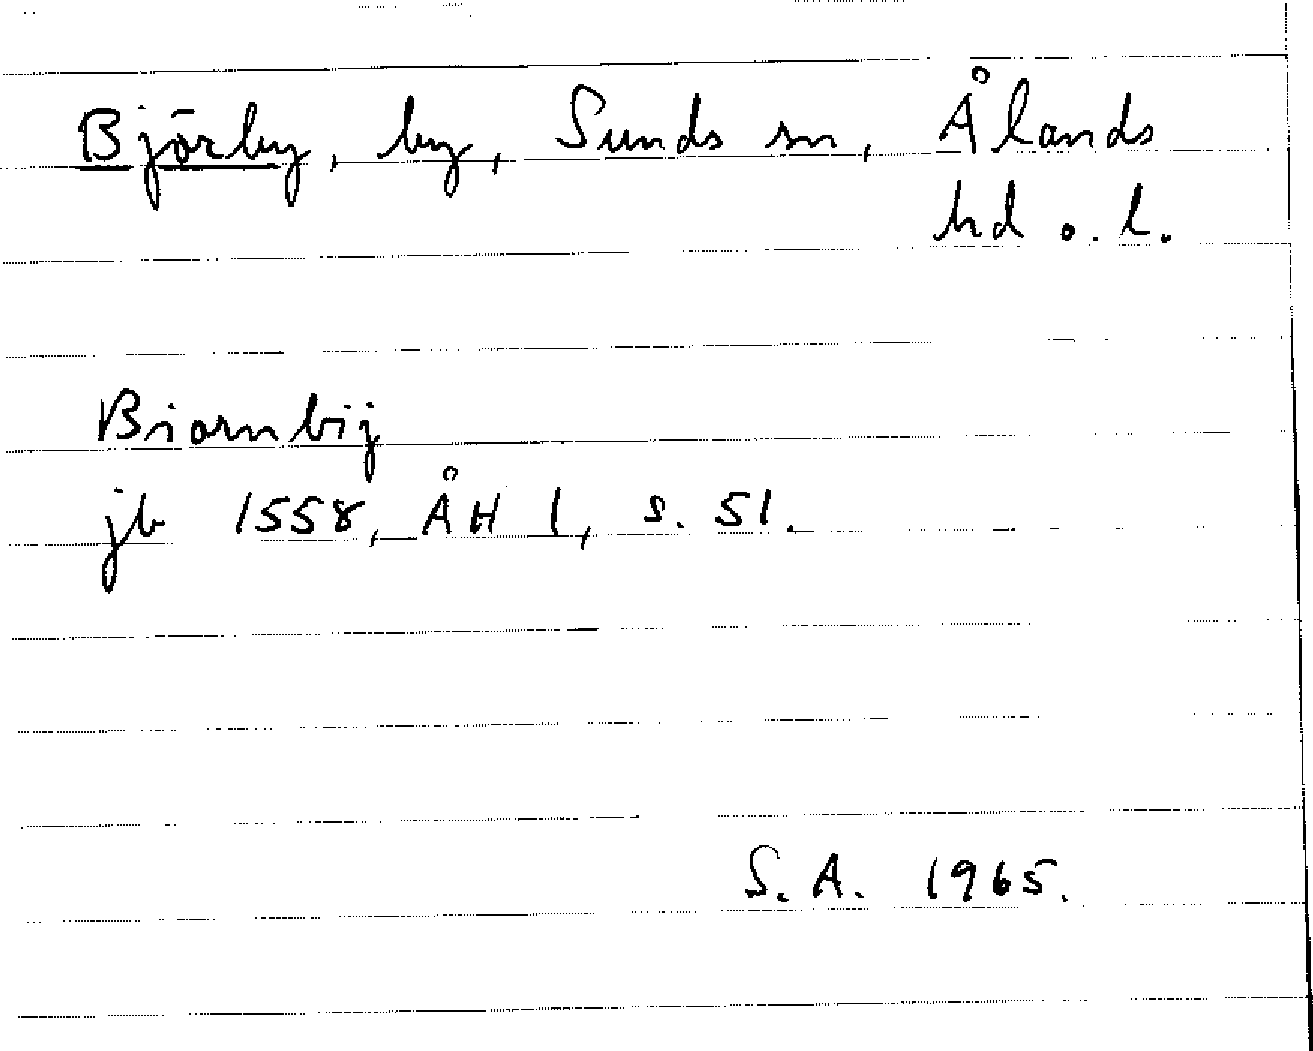 Björby, by, Sunds sn, Ålands
hd o. l.
Biornbij
jb 1558, ÅH 1, s. 51.
S.A. 1965.